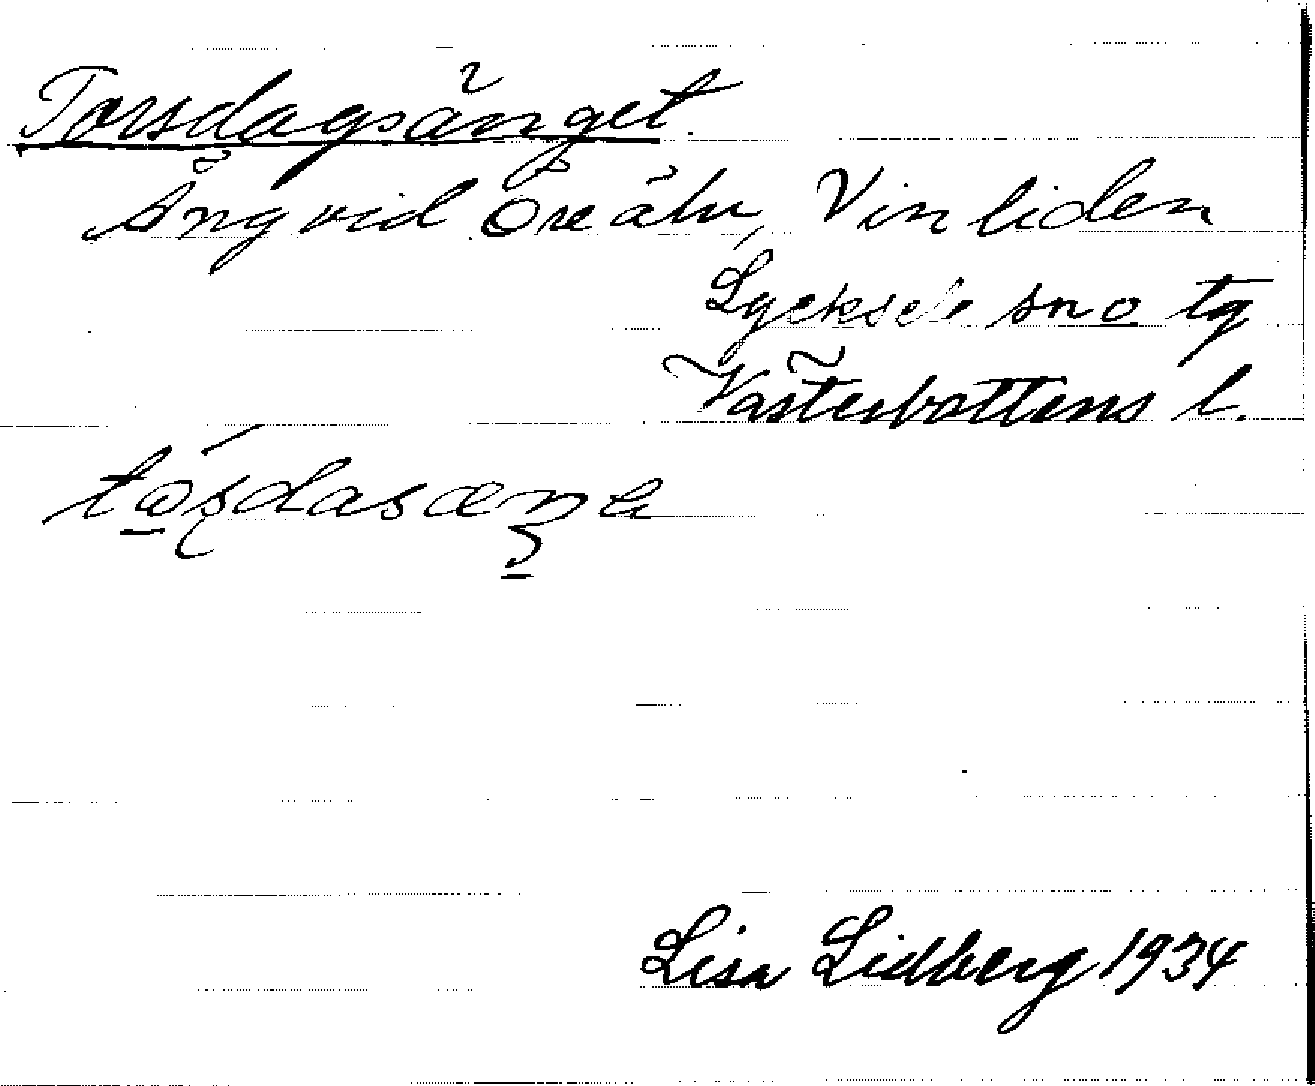 Torsdagsänget.
Äng vid Öre älv, Vinliden
Lycksele sn o tg
Västerbottens l.
Lisa Lidberg 1934